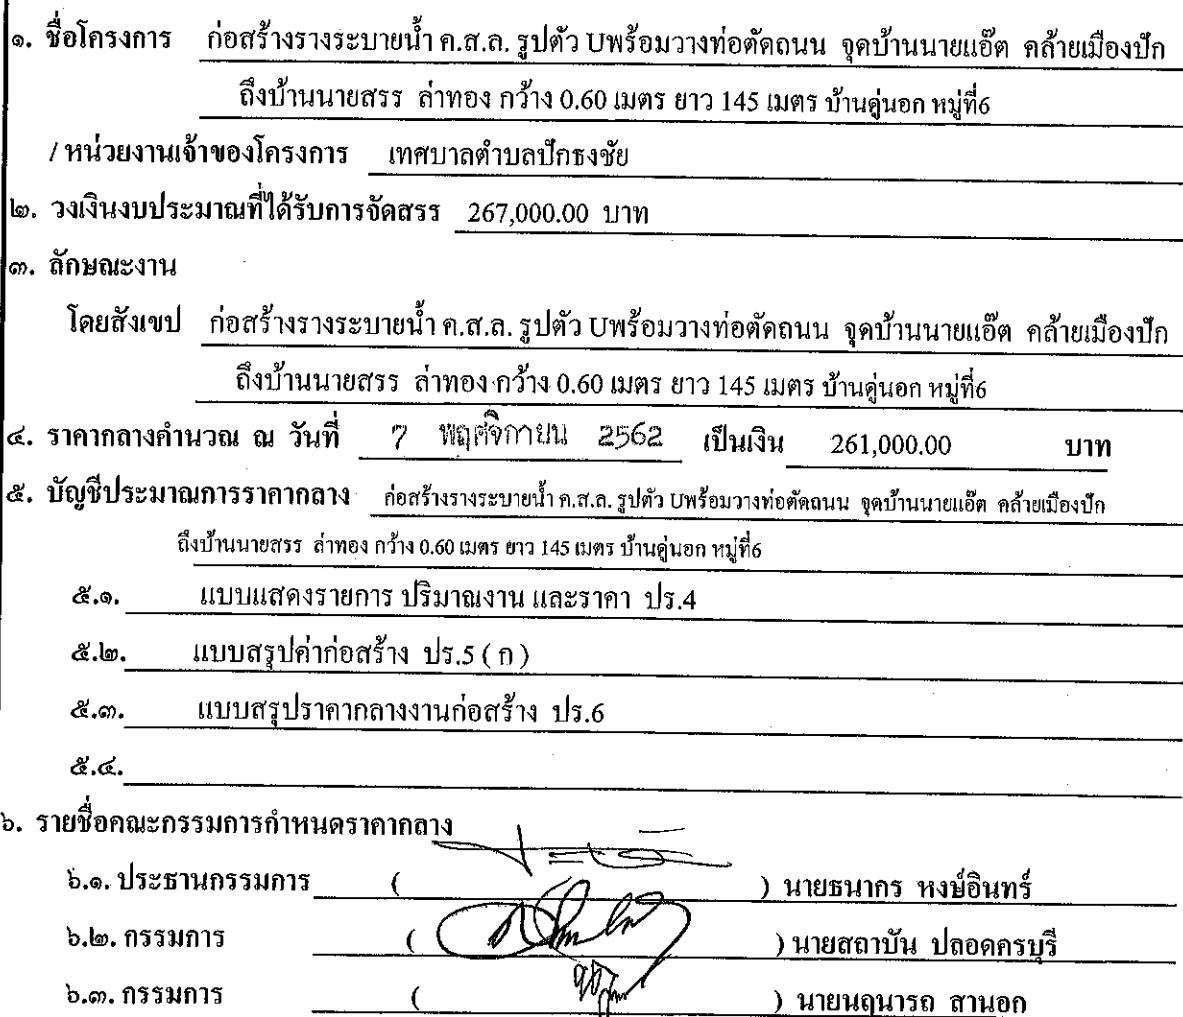 ๑. ชื่อโครงการ ก่อสร้างรางระบายน้ำ ค.ส.ล. รูปตัว Uพร้อมวางท่อตัดถนน จุดบ้านนายแอ๊ต คล้ายเมืองปัก
ถึงบ้านนายสรร ล่าทอง กว้าง 0.60 เมตร ยาว 145 เมตร บ้านดู่นอก หมู่ที่6
/ หน่วยงานเจ้าของโครงการ เทศบาลตำบลปักธงชัย
๒. วงเงินงบประมาณที่ได้รับการจัดสรร 267,000.00 บาท
๓. ลักษณะงาน
โดยสังเขป ก่อสร้างรางระบายน้ำ ค.ส.ล. รูปตัว Uพร้อมวางท่อตัดถนน จุดบ้านนายแอ๊ต คล้ายเมืองปัก
ถึงบ้านนายสรร ล่าทอง กว้าง 0.60 เมตร ยาว 145 เมตร บ้านดู่นอก หมู่ที่6
๔. ราคากลางคำนวณ ณ วันที่ 7 พฤศจิกายน 2562 เป็นเงิน 261,000.00 บาท
๕. บัญชีประมาณการราคากลาง ก่อสร้างรางระบายน้ำ ค.ส.ล. รูปตัว Uพร้อมวางท่อตัดถนน จุดบ้านนายแอ๊ต คล้ายเมืองปัก
ถึงบ้านนายสรร ล่าทอง กว้าง 0.60 เมตร ยาว 145 เมตร บ้านดู่นอก หมู่ที่6
๕.๑. แบบแสดงรายการ ปริมาณงาน และราคา ปร.4
๕.๒. แบบสรุปค่าก่อสร้าง ปร.5 ( ก )
๕.๓. แบบสรุปราคากลางงานก่อสร้าง ปร.6
๕.๔.
๖. รายชื่อคณะกรรมการกำหนดราคากลาง
๖.๑. ประธานกรรมการ ( ) นายธนากร หงษ์อินทร์
๖.๒. กรรมการ ( ) นายสถาบัน ปลอดครบุรี
๖.๓. กรรมการ ( ) นายนฤนารถ สานอก